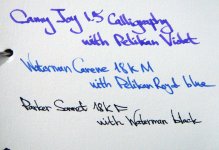 Camy Joy 1.5 Calligraphy
with Pelikan Violet
Waterman Carene 18K M
with Pelikan Royal blue
Parker Sonnet 18K F
with Waterman black